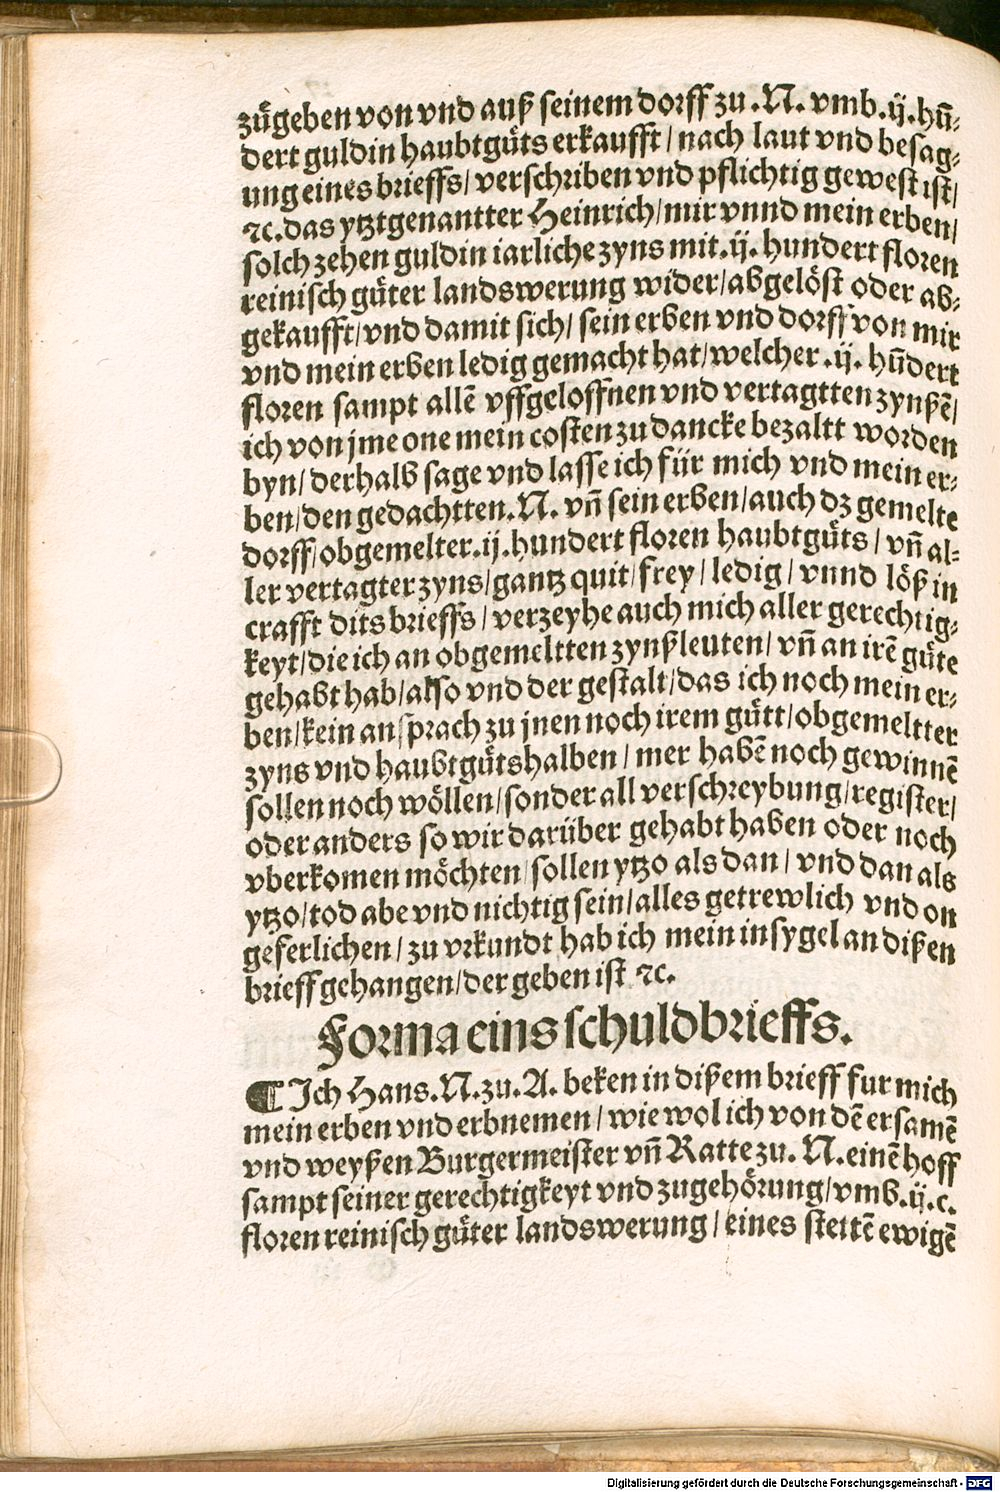 zůgeben von vnd auß seinem dorff zu .N. vmb.ij.hũ⸗
dert guldin haubtgůts erkaufft / nach laut vnd besag⸗
ung eines brieffs / verschriben vnd pflichtig gewest ist /
ꝛc. das ytztgenantter Heinrich / mir vnnd mein erben /
solch zehen guldin iarliche zyns mit .ij. hundert floren
reinisch gůter landswerung wider / abgelöst oder ab⸗
gekaufft / vnd damit sich / sein erben vnd dorff von mir
vnd mein erben ledig gemacht hat / welcher .ij. hũdert
floren sampt allẽ vffgeloffnen vnd vertagtten zynßẽ /
ich von jme one mein costen zu dancke bezaltt worden
byn / derhalb sage vnd lasse ich für mich vnd mein er⸗
ben / den gedachtten .N. vñ sein erben / auch dz gemelte
dorff / obgemelter .ij. hundert floren haubtgůts / vñ al⸗
ler vertagter zyns / gantz quit / frey / ledig / vnnd löß in
crafft dits brieffs / verzeyhe auch mich aller gerechtig⸗
keyt / die ich an obgemeltten zynßleuten / vñ an irẽ gůte
gehabt hab / also vnd der gestalt / das ich noch mein er⸗
ben / kein ansprach zu jnen noch irem gůtt / obgemeltter
zyns vnd haubtgůtshalben / mer habẽ noch gewinnẽ
sollen noch wöllen / sonder all verschreybung / register /
oder anders so wir darüber gehabt haben oder noch
vberkomen möchten / sollen ytzo als dan / vnd dan als
ytzo / tod abe vnd nichtig sein / alles getrewlich vnd on
geferlichen / zu vrkundt hab ich mein insygel an dißen
brieff gehangen / der geben ist ꝛc.
Forma eins schuldbrieffs.
¶ Ich Hans .N. zu .A. beken in dißem brieff fur mich
mein erben vnd erbnemen / wie wol ich von dẽ ersamẽ
vnd weyßen Burgermeister vñ Ratte zu .N. einẽ hoff
sampt seiner gerechtigkeyt vnd zugehörung / vmb .ij.c.
floren reinisch gůter landswerung / eines stettẽ ewigẽ
Digitalisierung gefördert durch die Deutsche Forschungsgemeinschaft - DFG